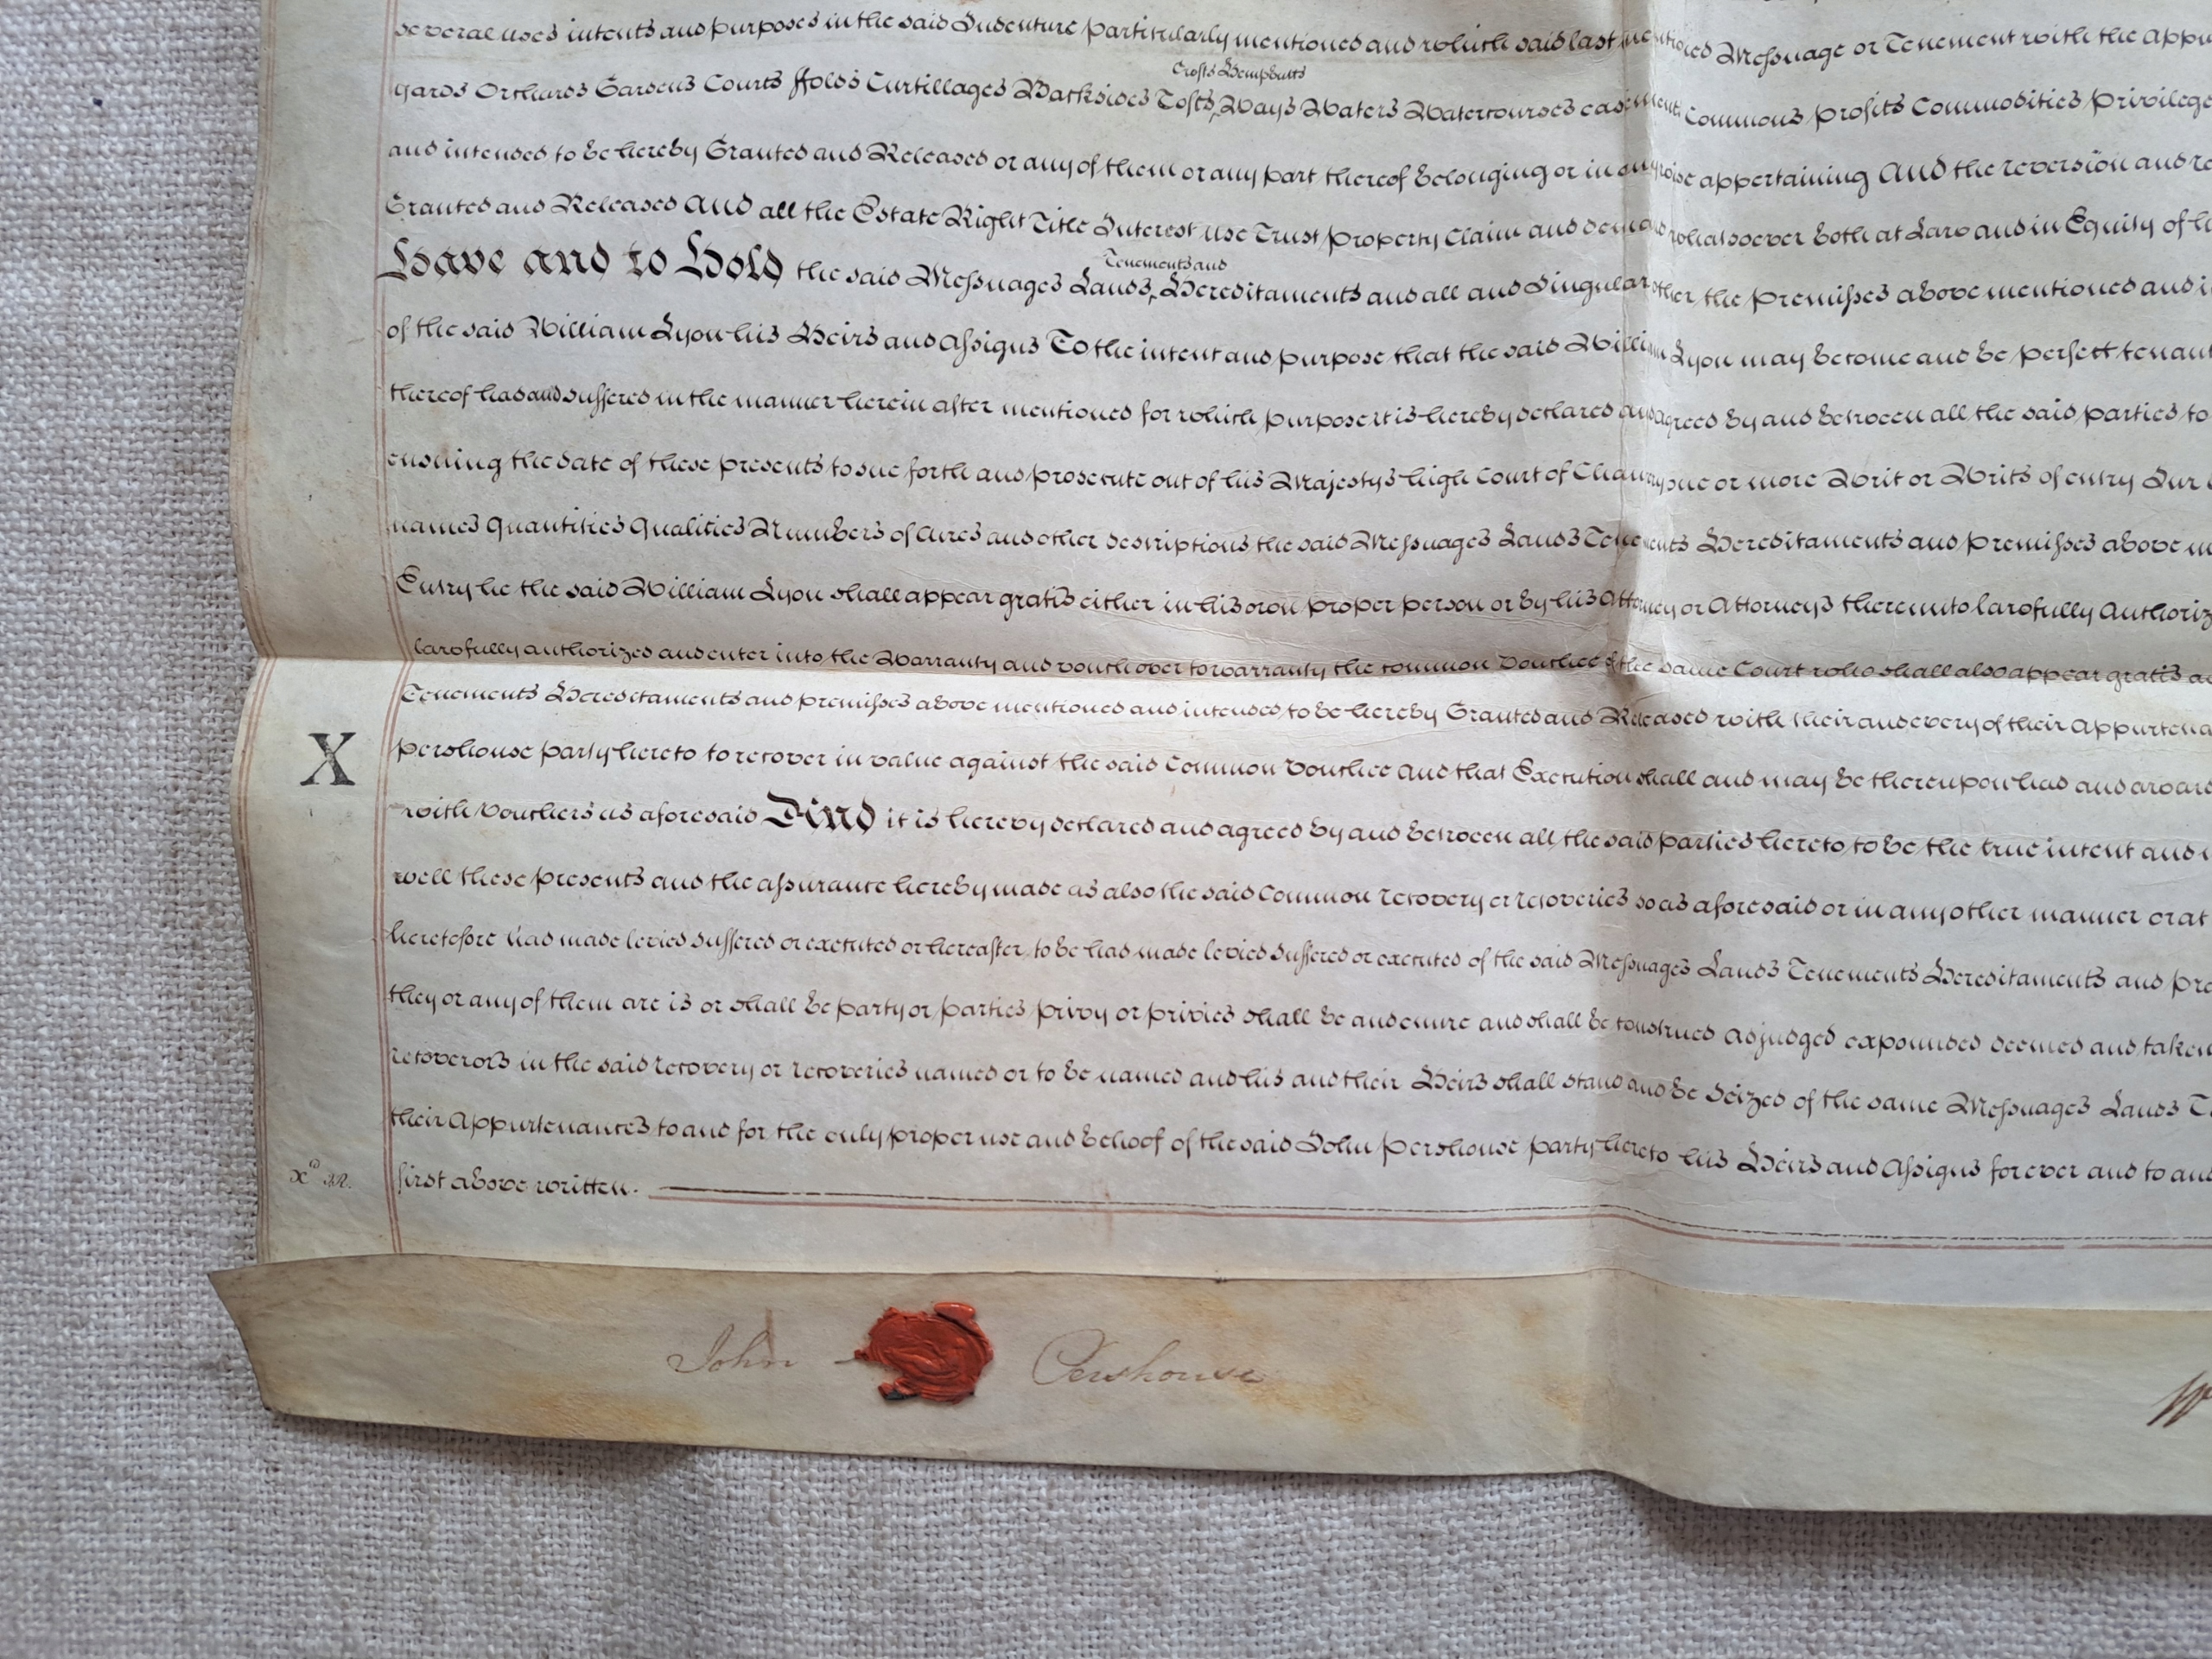 several uses intents and purposes in the said Indenture particularly mentioned and which said last mentioned Messuage or Tenement with the appu
Crofts Hempbutts
yards Orchards Gardens Courts ffolds Curtillages Backsides Tofts Ways Waters Watercourses easements Commons profits Commodities privilege
and intended to be hereby Granted and Released or any of them or any part thereof belonging or in any wise appertaining And the reversion and re
Granted and Released And all the Estate Right Title Interest use Trust property Claim and demand whatsoever both at Law and in Equity of
Tenements and
Have and to Hold the said Messuages Lands Hereditaments and all and Singular other the premisses above mentioned and i
of the said William Lyon his Heirs and Assigns To the intent and purpose that the said William Lyon may become and be perfect tenant
thereof had and suffered in the manner herein after mentioned for which purpose it is hereby declared and agreed by and between all the said parties to
ensuing the date of these presents to sue forth and prosecute out of his Majestys high Court of Chancery one or more Writ or Writs of entry Sur
names Quantities Qualities Numbers of Acres and other descriptions the said Messuages Lands Tenements Hereditaments and premisses above m
Entry he the said William Lyon shall appear gratis either in his own proper person or by his Attorney or Attorneys thereunto lawfully Authoriz
lawfully authorized and enter into the Warranty and vouch over to warranty the common Vouchee of the same Court who shall also appear gratis a
Tenements Hereditaments and premisses above mentioned and intended to be hereby Granted and Released with their and every of their Appurtena
X
pershouse party hereto to recover in value against the said Common Vouchee And that Execution shall and may be thereupon had and award
with Vouchers as aforesaid And it is hereby declared and agreed by and between all the said parties hereto to be the true intent and
well these presents and the assurance hereby made as also the said Common recovery or recoveries so as aforesaid or in any other manner or at
heretofore had made levied suffered or executed or hereafter to be had made levied suffered or executed of the said Messuages Lands Tenements Hereditaments and pre
they or any of them are is or shall be party or parties privy or privies shall be and enure and shall be construed adjudged expounded deemed and taken
recoverors in the said recovery or recoveries named or to be named and his and their Heirs shall stand and be Seized of the same Messuages Lands T
their Appurtenances to and for the only proper use and behoof of the said John pershouse party hereto his Heirs and Assigns for ever and to and
first above written.
John Pershouse
W